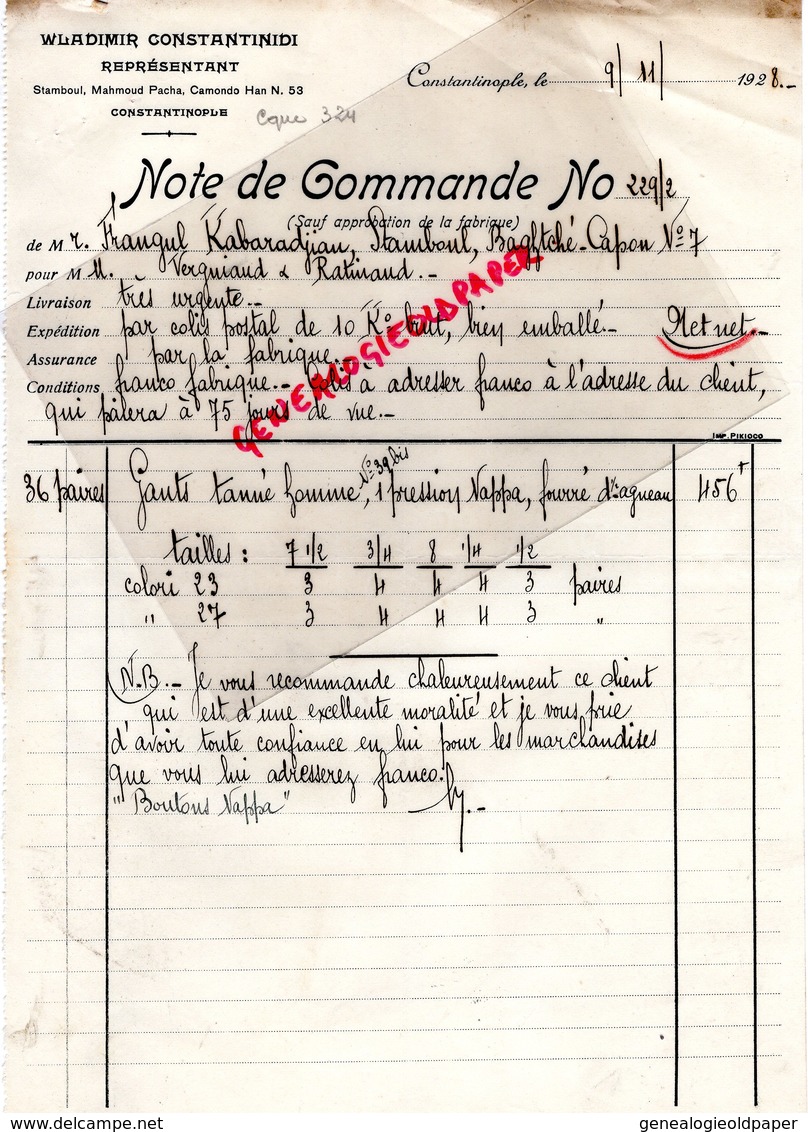 WLADIMIR CONSTANTINIDI
REPRÉSENTANT
Stamboul, Mahmoud Pacha, Camondo Han N. 53
CONSTANTINOPLE
Constantinople, le 9/11/ 1928.-
324
Note de Commande No 229/2
(Sauf approbation de la fabrique)
de M r. Frangul Kabaradjian, Stamboul, Baghtché-Capon Nº 7
pour M M. Vergniaud & Ratinaud.-
Livraison très urgente.-
Expédition par colis postal de 10 Kº brut, bien emballé.- Net net.-
Assurance par la fabrique.-
Conditions franco fabrique.- Colis à adresser franco à l'adresse du client,
qui paiera à 75 jours de vue.-
GENEALOGIEOLDPAPER
IMP. PIKIOCO
36 paires Gants tanné homme, Nº 39 bis, 1 pression Nappa, fourré d'agneau 456
tailles : 7 1/2 3/4 8 1/4 1/2
colori 23 3 4 4 4 3 paires
" 27 3 4 4 4 3 "
N.B.- Je vous recommande chaleureusement ce client
qui est d'une excellente moralité et je vous prie
d'avoir toute confiance en lui pour les marchandises
que vous lui adresserez franco.
"Boutons Nappa"
www.delcampe.net
genealogieoldpaper